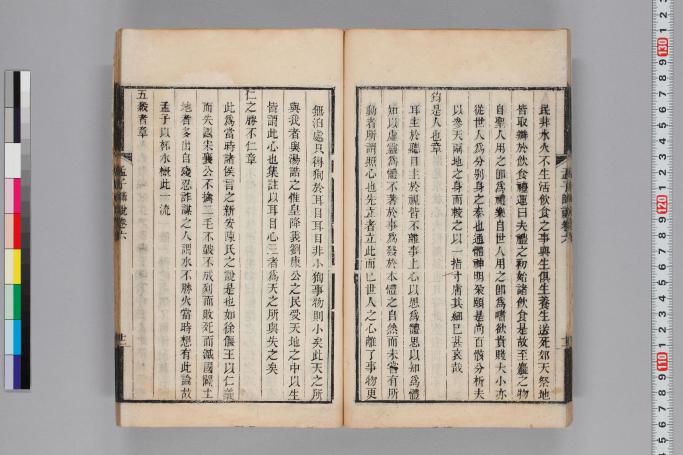 民非水火不生活飲食之事與生俱生養生送死郊天祭地
皆取辦於飲食禮運曰夫禮之初始諸飲食是故至䙝之物
自聖人用之即為禮樂自世人用之即為嗜欲貴賤大小亦
從世人為分別身之泰也通體神明
尚百骸分析夫
以參天兩地之身而較之以一指寸膚其細已甚哀哉
鈞是人也章
耳主於聽目主於視皆不離事上心以思為體思以知為體
知以虛靈為體不著於事為發於本體之自然而未嘗有所
動者所謂照心也先立者立此而已世人之心離了事物更
無泊處只得狥於耳目耳目非小狥事物則小矣此天之所
與我者與湯誥之惟皇降衷劉康公之民受天地之中以生
皆謂此心也集註以耳目心三者為天之所與失之矣
仁之勝不仁章
此為當時諸侯言之新安陳氏之說是也如徐偃王以仁義
而失國宋襄公不擒二毛不鼓不成列而敗死而滅國闢土
地者多出自殘忍詐謀之人謂水不勝火當時想有此論故
孟子以杯水概此一流
五穀者章
孟子師說卷六